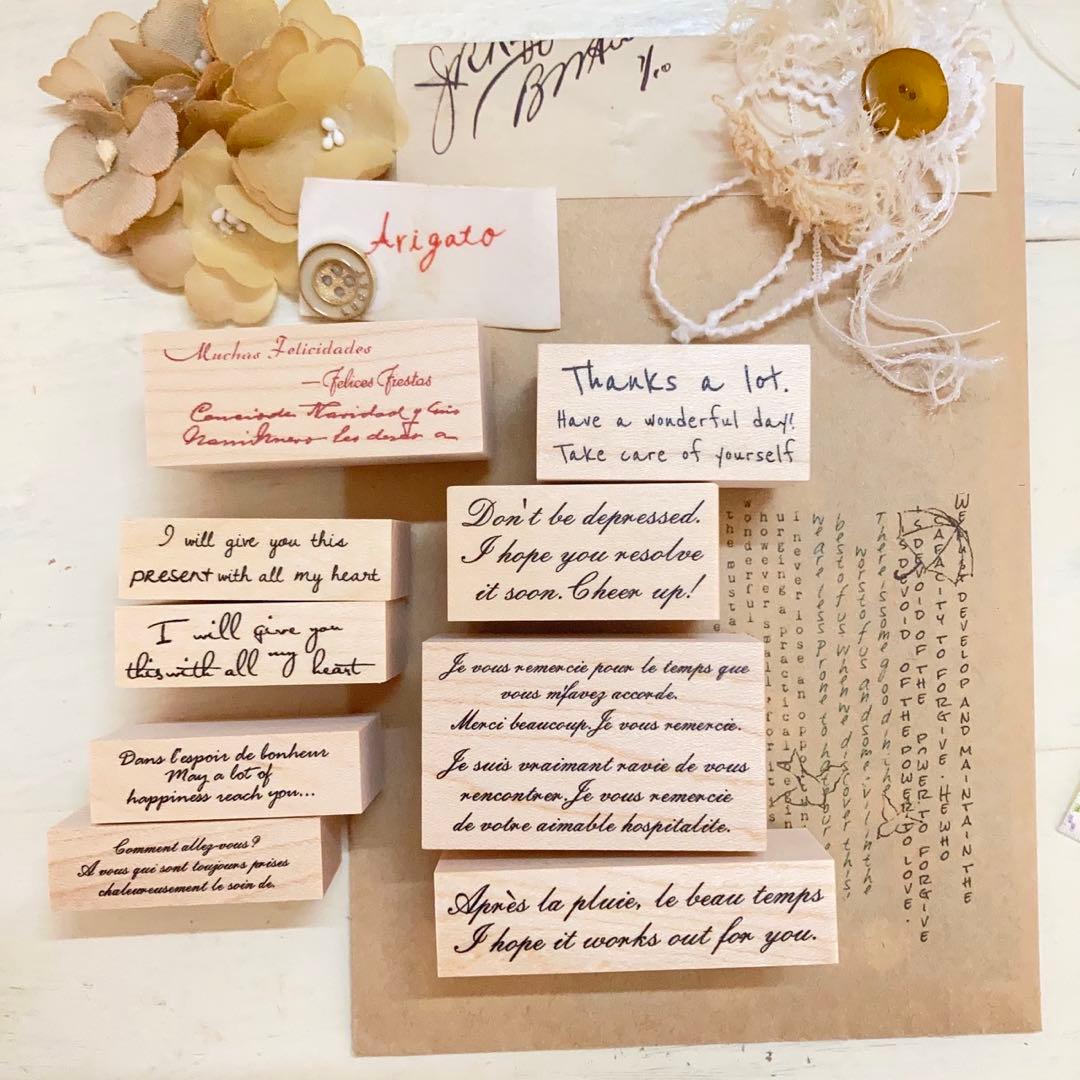 7/10
Arigato
Muchas Felicidades
—Felices Fiestas
Navidad y
les desea a
Thanks a lot.
Have a wonderful day!
Take care of yourself
I will give you this
PRESENT with all my heart
I will give you
this with all my heart
Don't be depressed.
I hope you resolve
it soon. Cheer up!
Je vous remercie pour le temps que
vous m'avez accorde.
Merci beaucoup. Je vous remercie.
Je suis vraimant ravie de vous
rencontrer. Je vous remercie
de votre aimable hospitalite.
Dans l'espoir de bonheur
May a lot of
happiness reach you...
Comment allez-vous?
A vous qui sont toujours prises
chaleureusement le soin de.
Après la pluie, le beau temps
I hope it works out for you.
DEVELOP AND MAINTAIN THE
CAPACITY TO FORGIVE. HE WHO
IS DEVOID OF THE POWER TO FORGIVE
IS DEVOID OF THE POWER TO LOVE.
There is some good in the
worst of us and some evil in the
best of us. When we discover this,
we are less prone to hate our
I never lose an opp
urging a practical begin
however small, for it is
wonderful
the musta